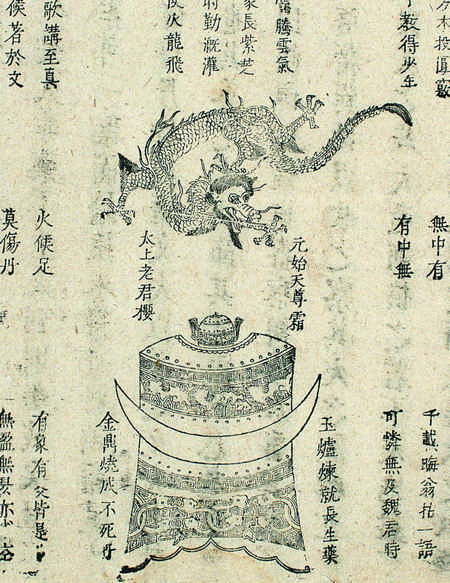 木投眞竅
教得少年
騰雲氣
家長紫芝
時勤漑灌
使火龍飛
歌講至真
候著於文
無中有
有中無
元始天尊霜
太上老君櫻
火候足
莫傷丹
千載晦翁拈一語
可憐無及魏君時
玉爐煉就長生藥
金鼎燒成不死丹
有象有爻皆是
無盈無